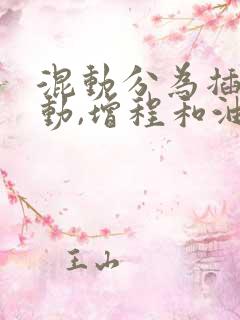 混動分為插
動,增程和油
王山